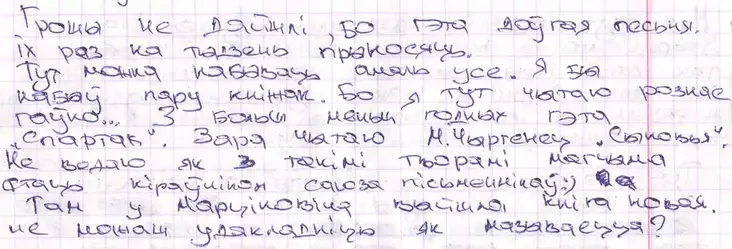 Грошы не дайшлі, бо гэта доўгая песьня.
Іх раз на тыдзень прыносяць.
Тут можна набываць амаль усе. Я бы
набыў пару кніжак. Бо я тут чытаю рознае
гаўно... З больш меньш годных гэта
„Спартак". Зара чытаю М.Чыргенец „Сыновья".
Не ведаю як з такімі творамі магчыма
стаць кіраўніком саюза пісьменнікаў:)
Там у Марціновіча выйшла кніга новая.
не можаш удакладніць як называецца?